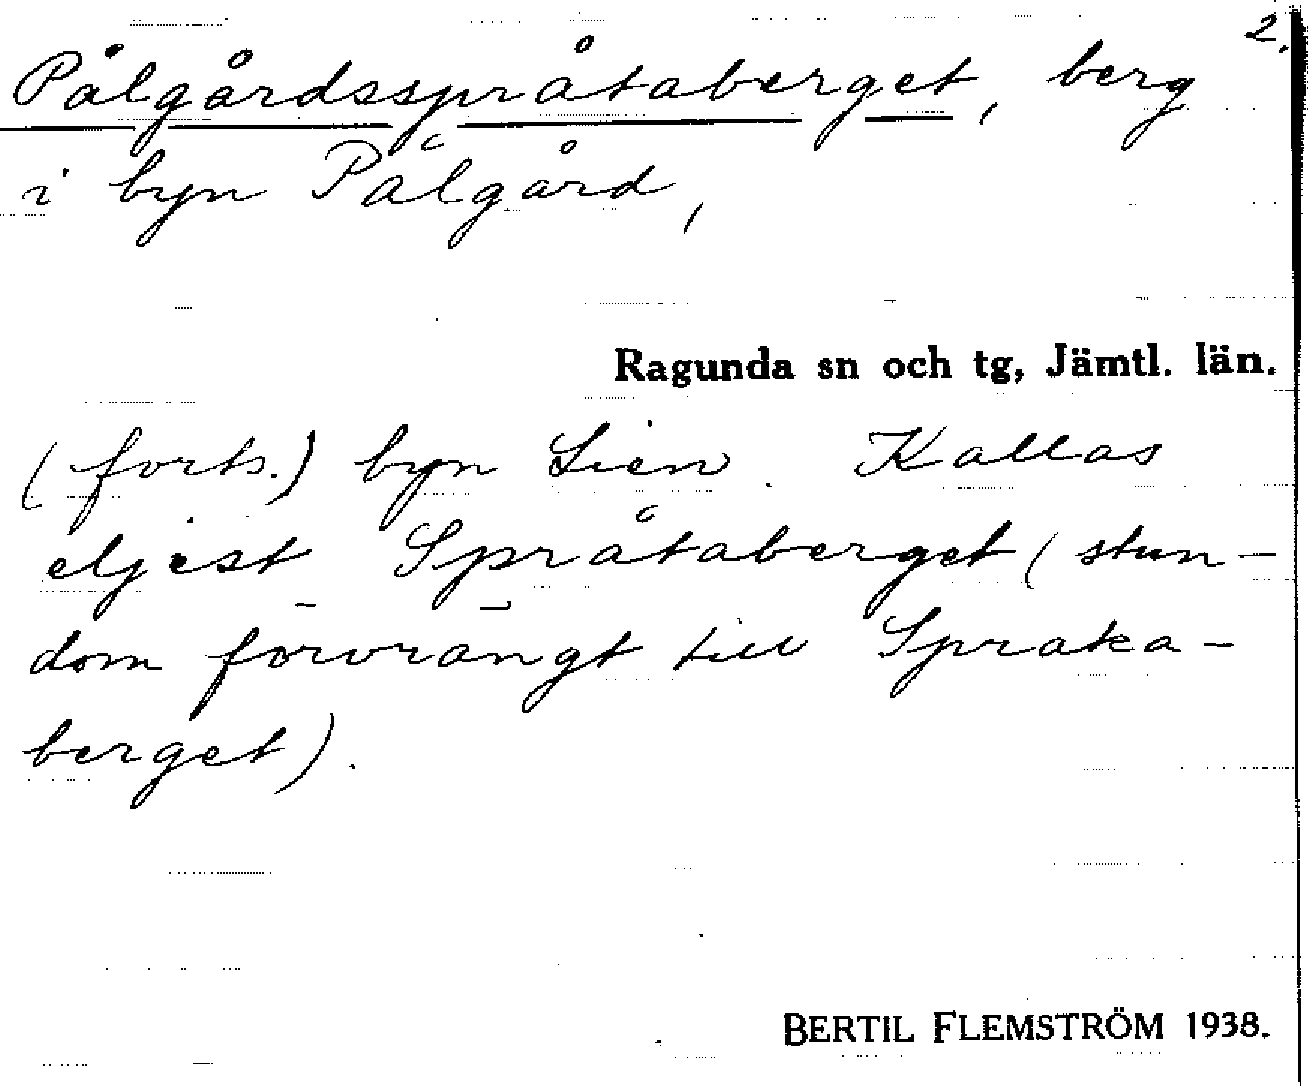 2.
Pålgårdsspråtaberget, berg
i byn Pålgård,
Ragunda sn och tg, Jämtl. län.
(forts.) byn Lien. Kallas
eljest Språtaberget (stun-
dom förvrängt till Spraka-
berget).
BERTIL FLEMSTRÖM 1938.